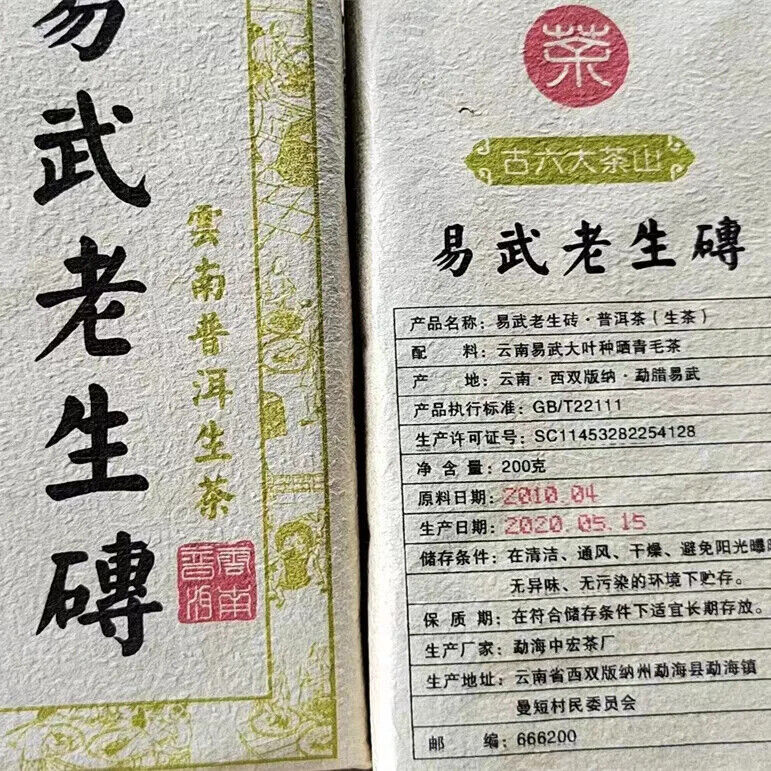 易武老生磚
雲南普洱生茶
雲南
普洱
茶
古六大茶山
易武老生磚
产品名称：易武老生砖·普洱茶（生茶）
配　　料：云南易武大叶种晒青毛茶
产　　地：云南·西双版纳·勐腊易武
产品执行标准：GB/T22111
生产许可证号：SC11453282254128
净 含 量：200克
原料日期：2010.04
生产日期：2020.05.15
储存条件：在清洁、通风、干燥、避免阳光曝晒
无异味、无污染的环境下贮存。
保 质 期：在符合储存条件下适宜长期存放。
生产厂家：勐海中宏茶厂
生产地址：云南省西双版纳州勐海县勐海镇
曼短村民委员会
邮　　编：666200